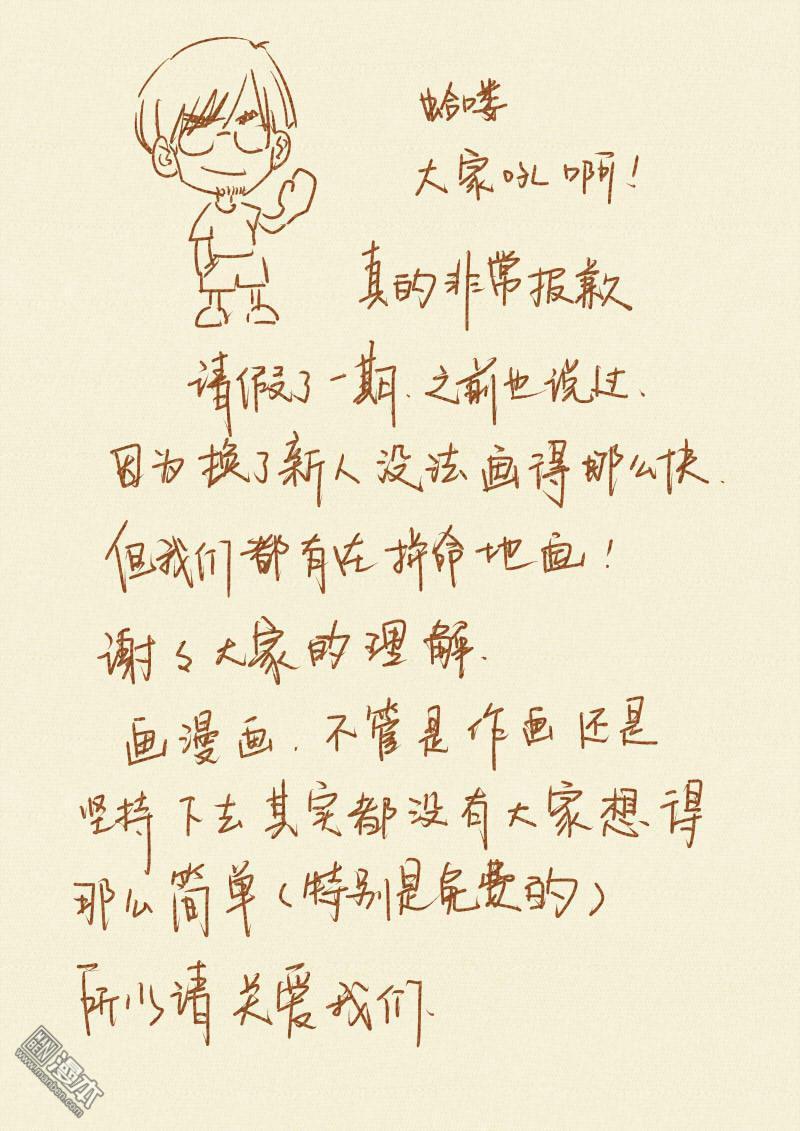 蛤喽
大家吼啊!
真的非常报歉
请假了一期.之前也说过.
因为换了新人没法画得那么快.
但我们都有在拚命地画!
谢々大家的理解.
画漫画.不管是作画还是
坚持下去其实都没有大家想得
那么简单(特别是免费的)
所以请关爱我们.
MAN BEN 漫本
www.manben.com